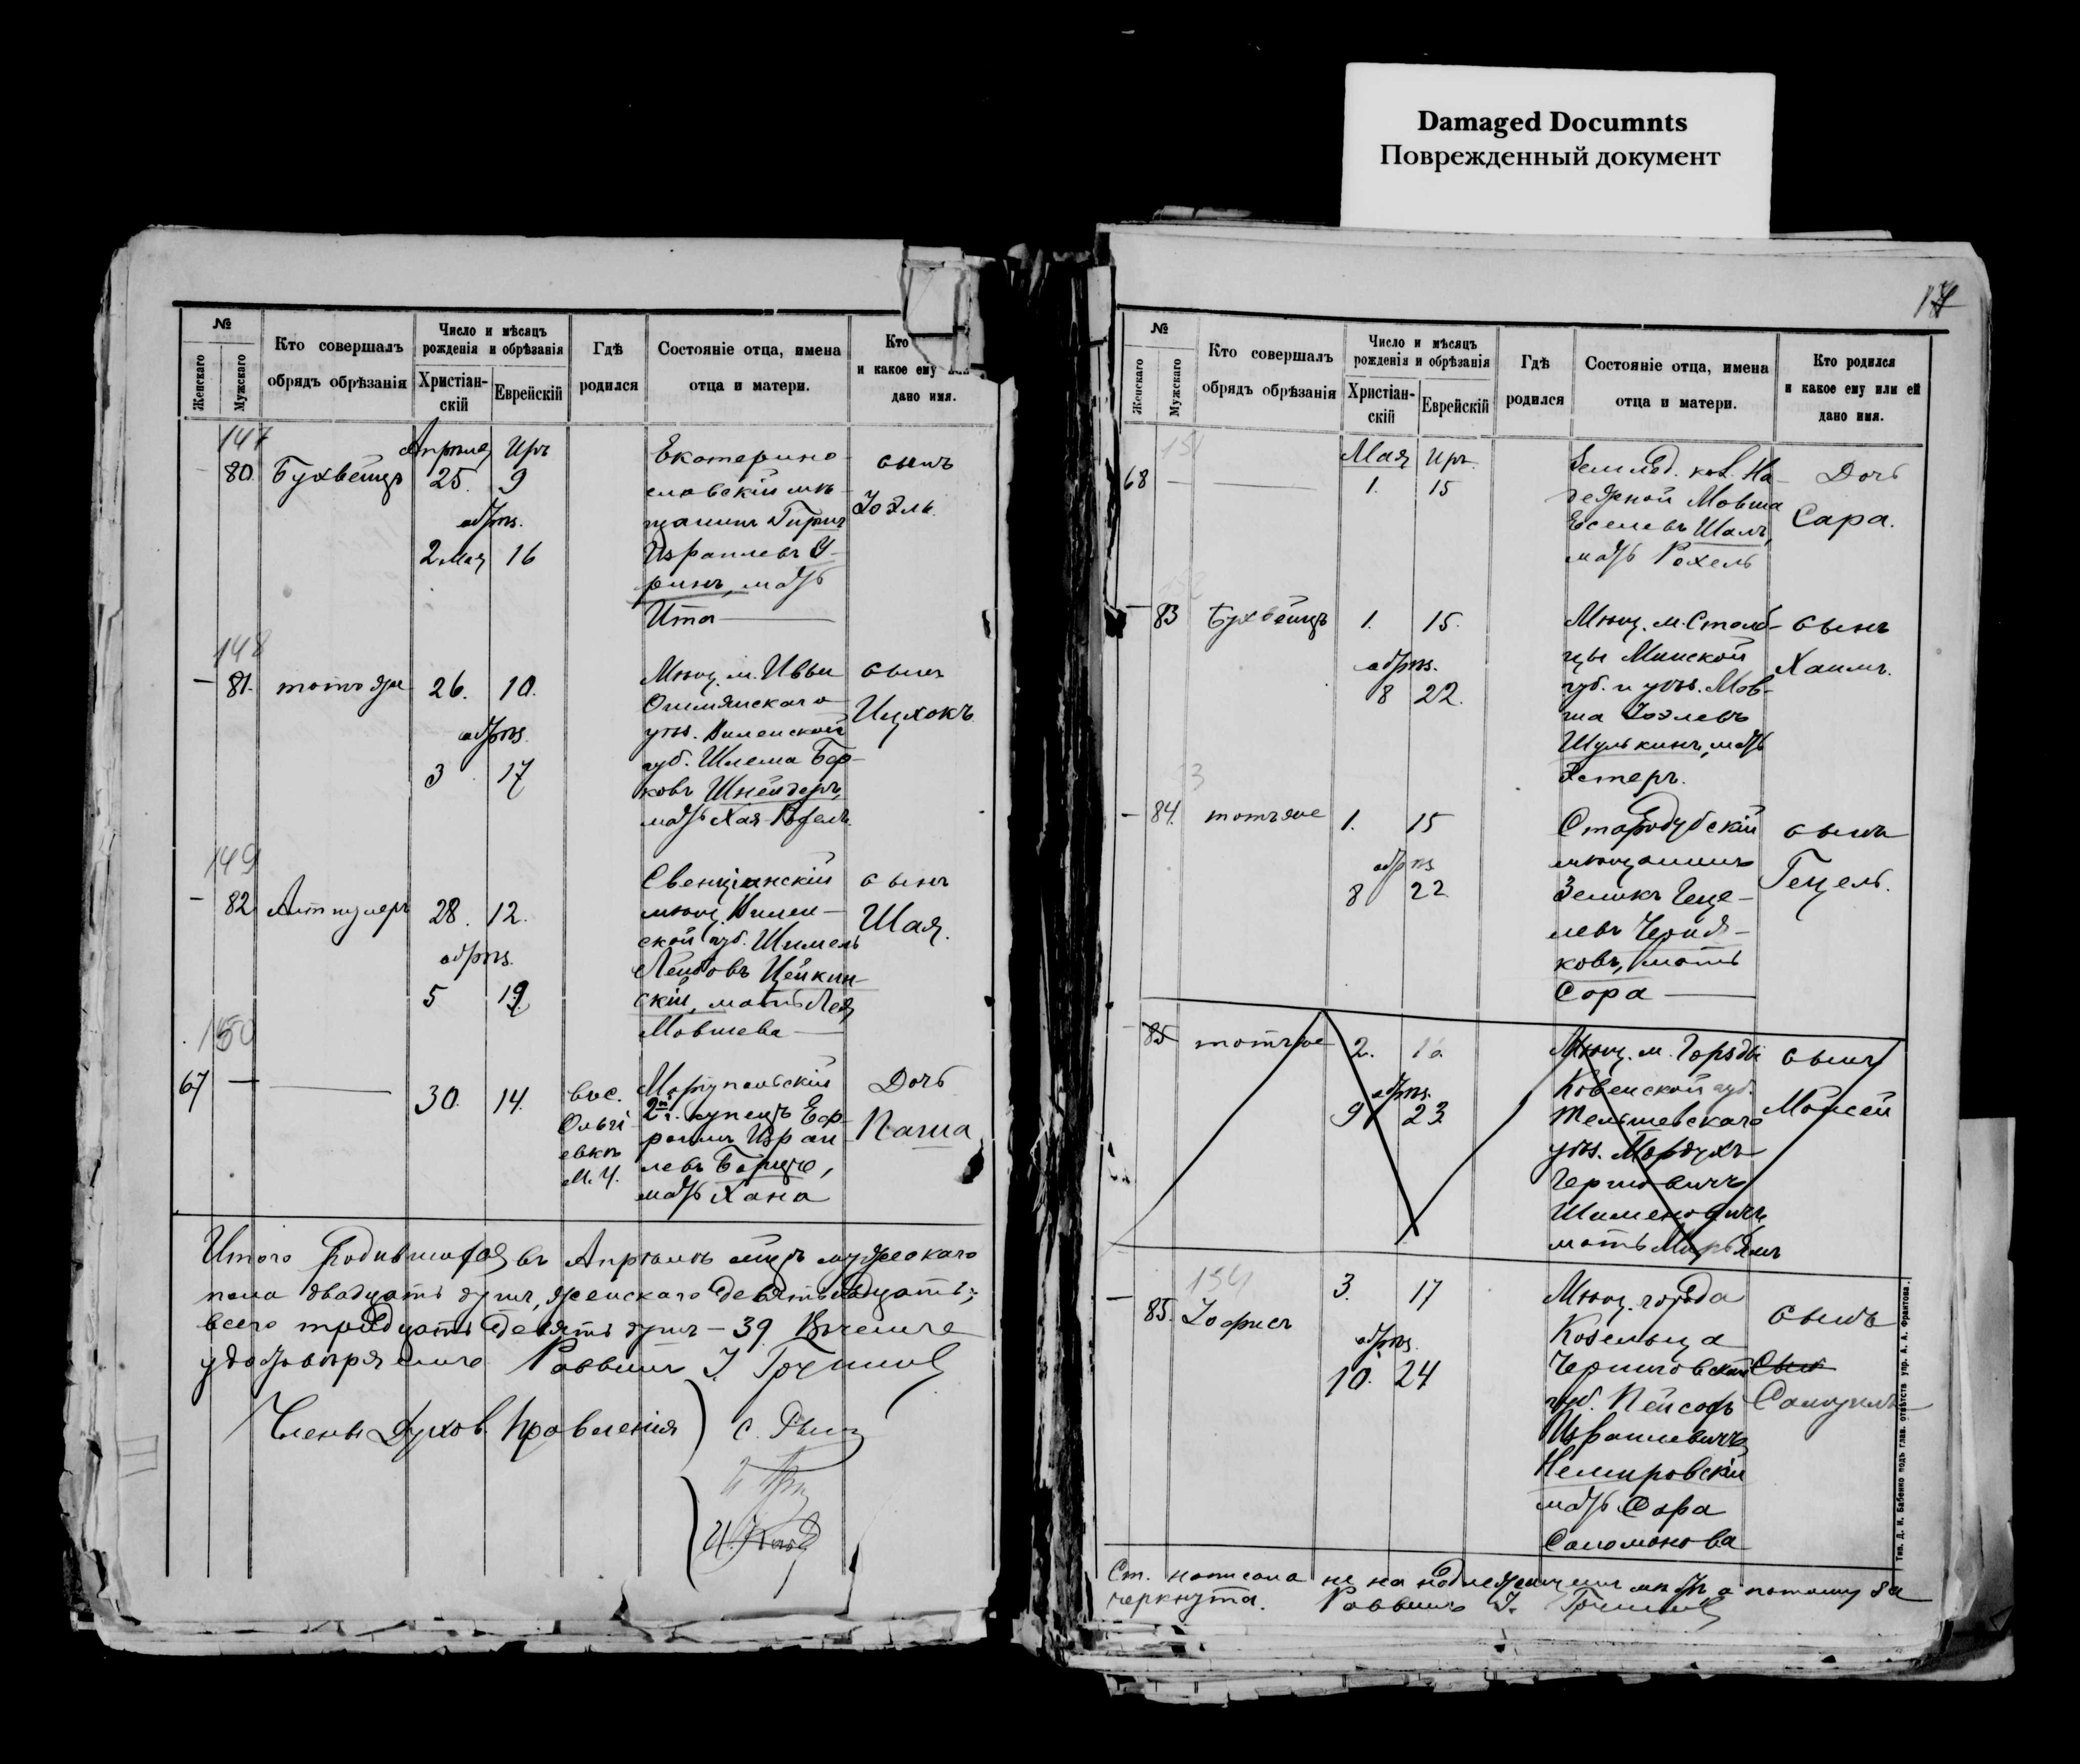 Damaged Documnts
Поврежденный документ
№
Женскаго
Мужскаго
Кто совершалъ
обрядъ обрѣзанія
Число и мѣсяцъ
рожденія и обрѣзанія
Христіан-
скій
Еврейскій
Гдѣ
родился
Состояніе отца, имена
отца и матери.
Кто
и какое ему
дано имя.
147
Апрѣля Иръ
80. Бухвейцъ 25. 9
обрѣз.
2 Мая 16
Екатерино-
славскій мѣ-
щанинъ Гиршъ
Израилевъ У-
ринъ, мать
Ита
сынъ
Іоэль
148
81. тотъ же 26. 10.
обрѣз.
3 17
Мѣщ. м. Ивьи
Ошмянскаго
уѣз. Виленской
губ. Шлема Бер-
ковъ Шнейдеръ,
мать Хая
сынъ
Ицхокъ
149
82 28. 12.
обрѣз.
5 19
Свенцянскій
мѣщ. Вилен-
ской губ. Шимель
Лейбовъ Цейкин-
скій, мать Лея
Мовшева
сынъ
Шая.
150
67 30. 14.
вос.
м. У.
Маріупольскій
2й г. купецъ Еф-
роимъ Израи-
левъ
мать Хана
Дочь
Паша
Итого родившихся въ Апрѣлѣ м-цѣ мужескаго
пола двадцать душъ, женскаго девятнадцать;
всего тридцать девять душъ - 39. Вѣчемъ
удостовѣряемъ Раввинъ І.
Члены Духов. Правленія
№
Женскаго
Мужскаго
Кто совершалъ
обрядъ обрѣзанія
Число и мѣсяцъ
рожденія и обрѣзанія
Христіан-
скій
Еврейскій
Гдѣ
родился
Состояніе отца, имена
отца и матери.
Кто родился
и какое ему или ей
дано имя.
151
Мая Иръ.
68 1. 15
Землед. кол. На-
дежной Мовша
Евселевъ Шалъ,
мать Рохель
Дочь
Сара.
152
83 Бухвейцъ 1. 15.
обрѣз.
8 22.
Мѣщ. м. Столб-
цы Минской
губ. и уѣз. Мов-
ша Іоэлевъ
Шулькинъ, мать
Эстеръ.
сынъ
Хаимъ.
84. тотъ же 1. 15
обрѣз
8 22
Стародубскій
мѣщанинъ
Зеликъ Геце-
левъ
ковъ, мать
Сора
сынъ
Гецель.
85 тотъ же 2. 16
обрѣз.
9 23
Мѣщ. м. Горжды
Ковенской губ.
Тельшевскаго
уѣз. Мордухъ
Гершовичъ
мать Мирьямъ
сынъ
Мойсей
154
85. Іофисъ 3. 17
обрѣз.
10. 24
Мѣщ. города
Козельца
Черниговской
губ. Пейсахъ
Израилевичъ
Немировскій
мать Сора
Соломонова
сынъ
Сын
Самуилъ
Ст. написана не на надлежащемъ мѣстѣ а потому за
черкнута. Раввинъ І.
Тип. Д. И. Бабенко подъ глав. отвѣтств. упр. А. А. Франтова.